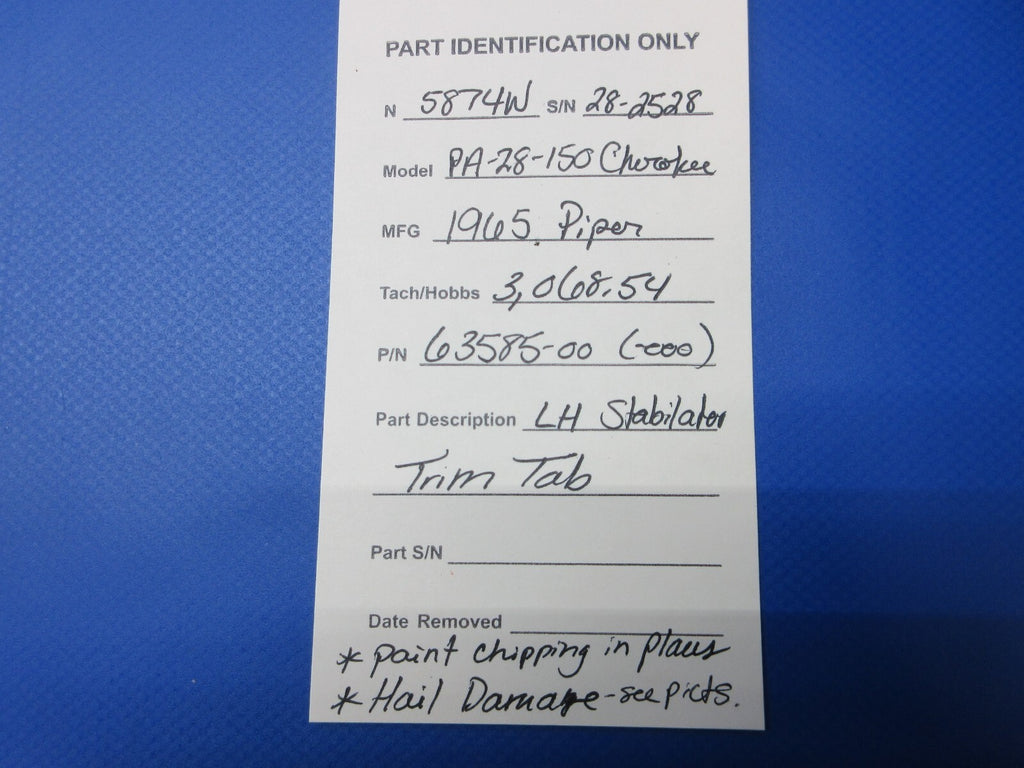 PART IDENTIFICATION ONLY
N 5874W S/N 28-2528
Model PA-28-150 Cherokee
MFG 1965 Piper
Tach/Hobbs 3,068.54
P/N 63585-00 (-000)
Part Description LH Stabilator
Trim Tab
Part S/N
Date Removed
* paint chipping in places
* Hail Damage - see picts.